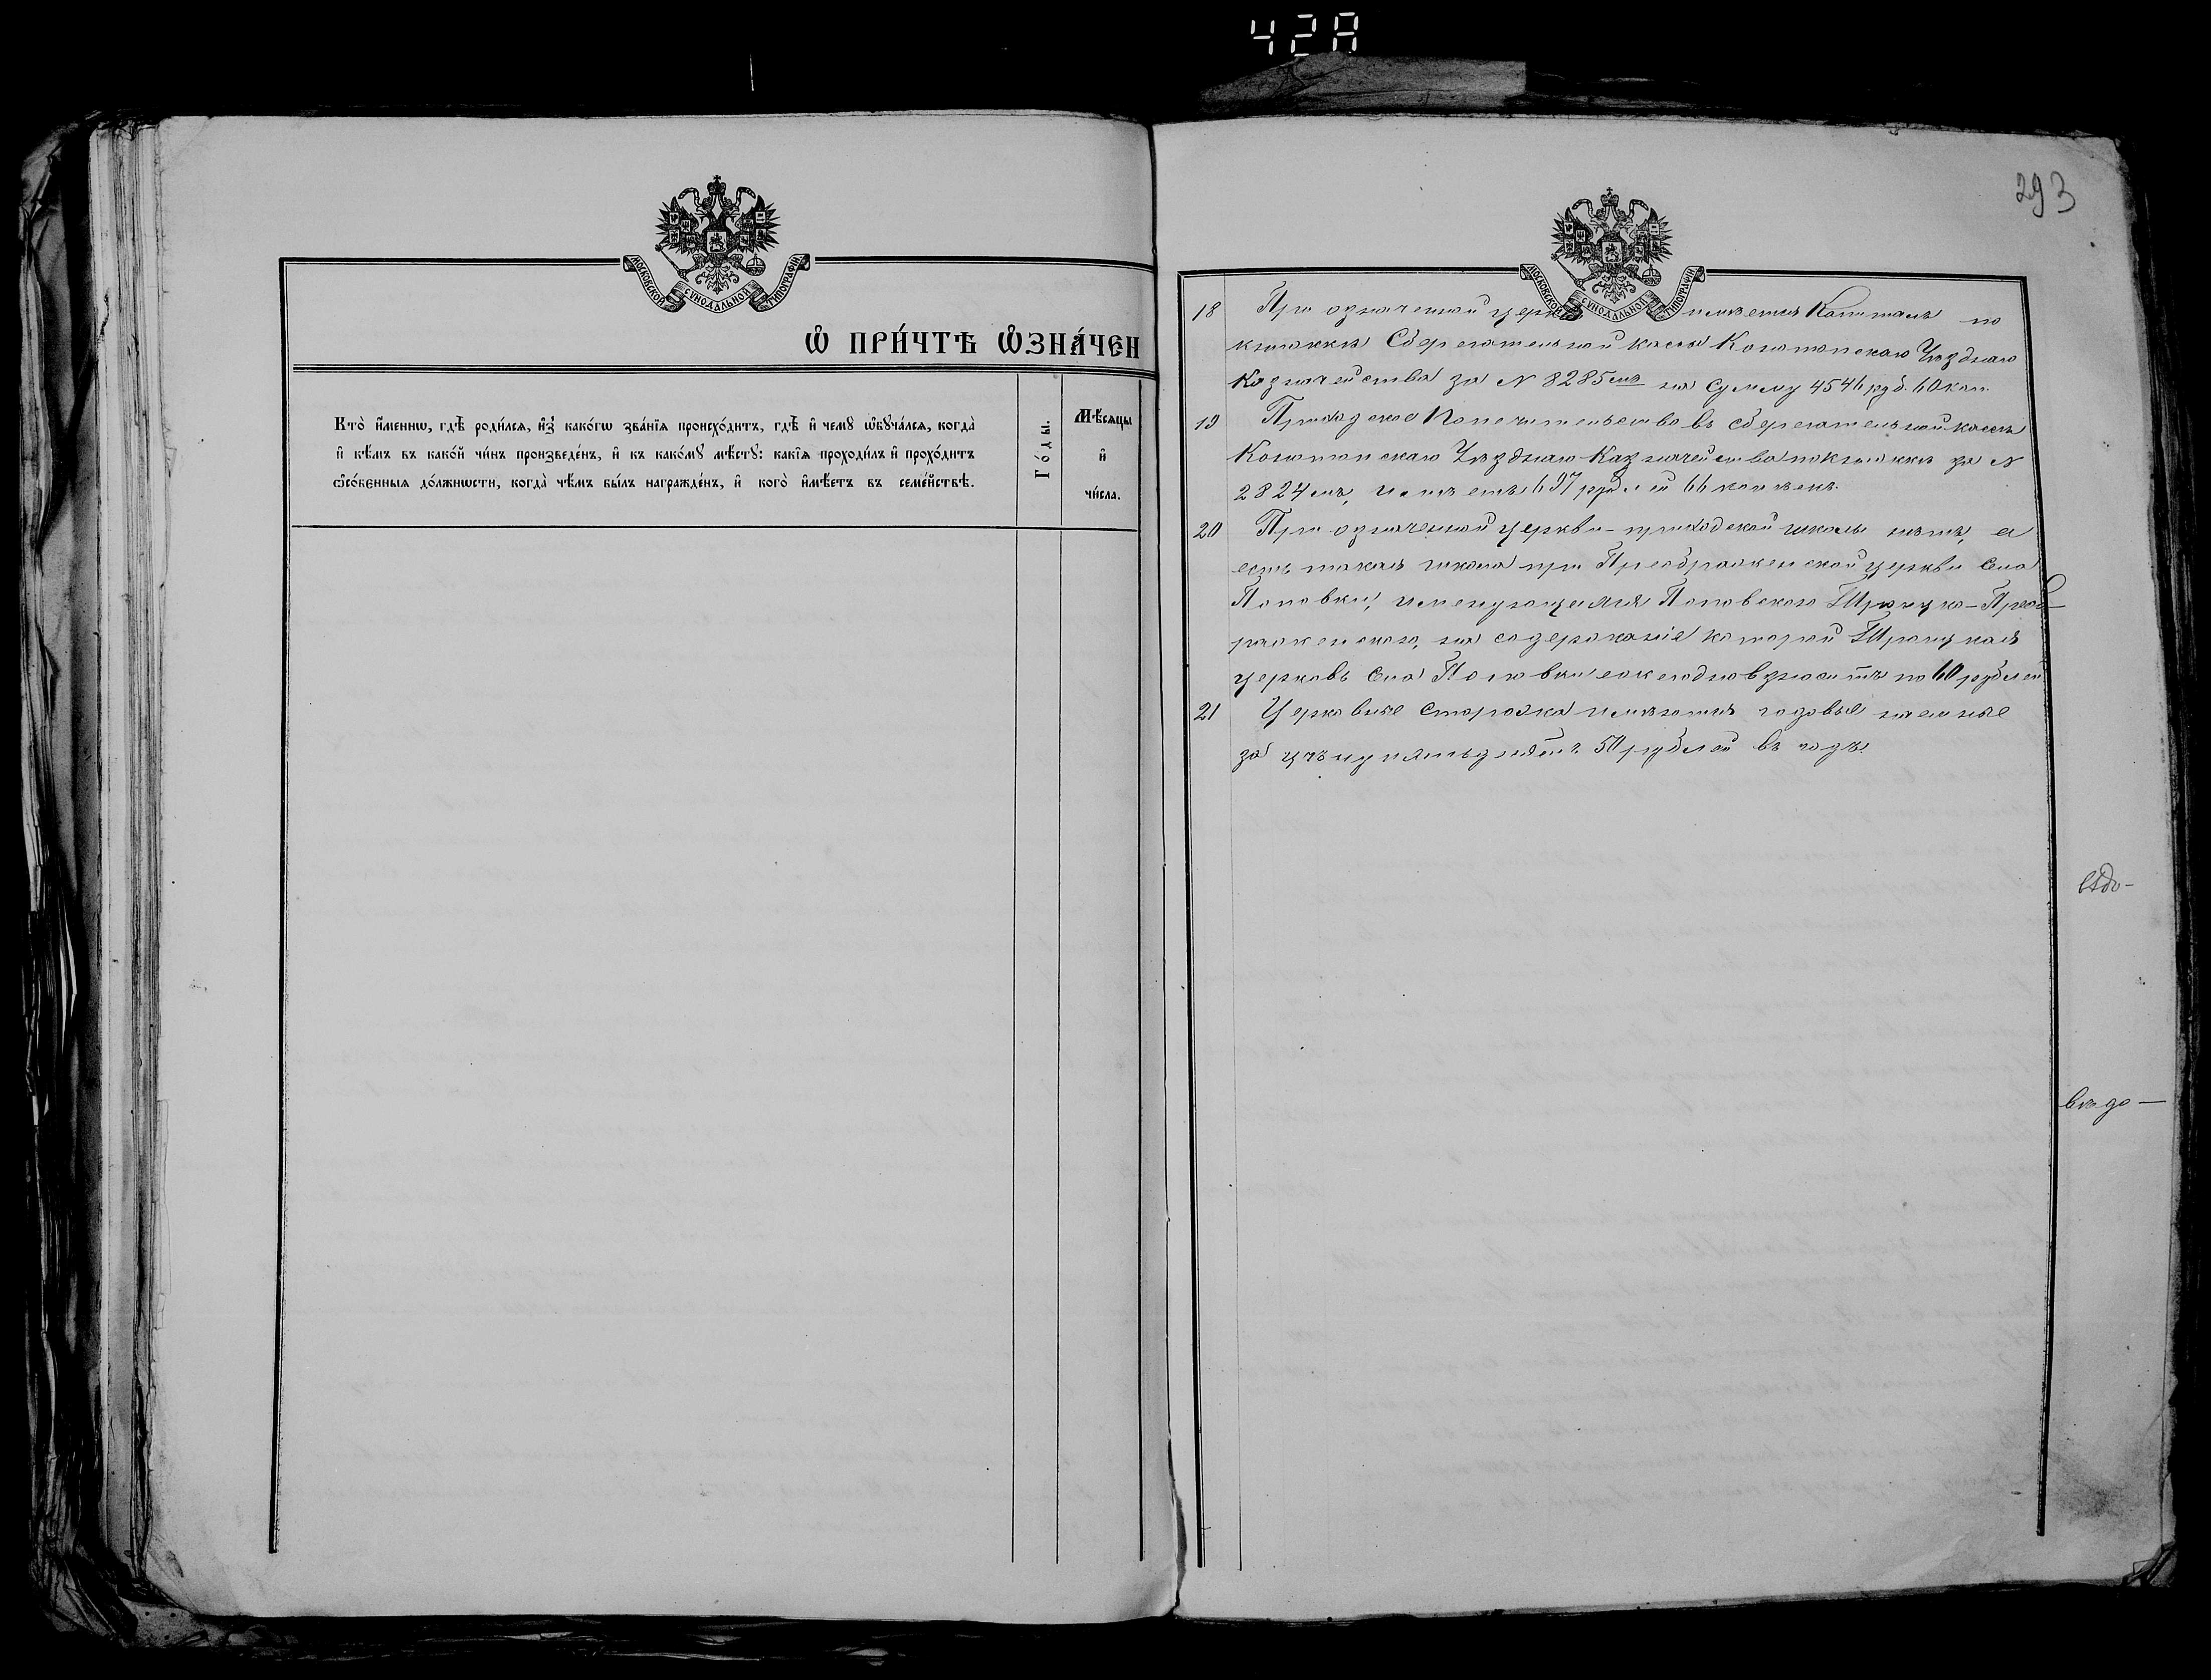 428
МОСКОВСКОЙ СѴНОДАЛЬНОЙ ТИПОГРАФІИ
Ѡ ПРИ́ЧТѢ ѠЗНА́ЧЕН
Кто̀ и҆́меннѡ, гдѣ̀ роди́лсѧ, и҆з̾ како́гѡ зва́нїѧ происхо́дитъ, гдѣ̀ и҆ чемꙋ̀ ѡ҆бꙋча́лсѧ, когда̀
и҆ кѣ́мъ въ како́й чи́нъ произведе́нъ, и҆ къ како́мꙋ мѣ́стꙋ: какі̑ѧ проходи́лъ и҆ прохо́дитъ
ѻ҆со́бенныѧ до́лжнѡсти, когда̀ чѣ́мъ бы́лъ награжде́нъ, и҆ кого̀ и҆мѣ́етъ въ семе́йствѣ.
Го́ды.
Мѣ́сѧцы
и҆
чи́сла.
293
МОСКОВСКОЙ СѴНОДАЛЬНОЙ ТИПОГРАФІИ
18 При означенной церкви имѣется Капиталъ по
книжки Сберегательной кассы Конотопскаго Уѣзднаго
Казначейства за № 8285мъ на сумму 4546 руб. 60 коп.
19 Приходское Попечительство въ сберегательной кассѣ
Конотопскаго Уѣзднаго Казначейства по книжки за №
2824мъ, имѣетъ 697 рублей 66 копѣекъ.
20 При означенной церкви - приходской школы нѣтъ, а
есть такая школа при Преображенской церкви села
Поповки, именующаяся Поповского Троицко-Преоб-
раженскою, на содержаніе которой Троицкая
церковь села Поповки ежегодно взноситъ по 60 рублей.
21 Церковные Сторожа имѣются годовые наемные
за цѣну 50 рублей въ годъ.
вѣдо-